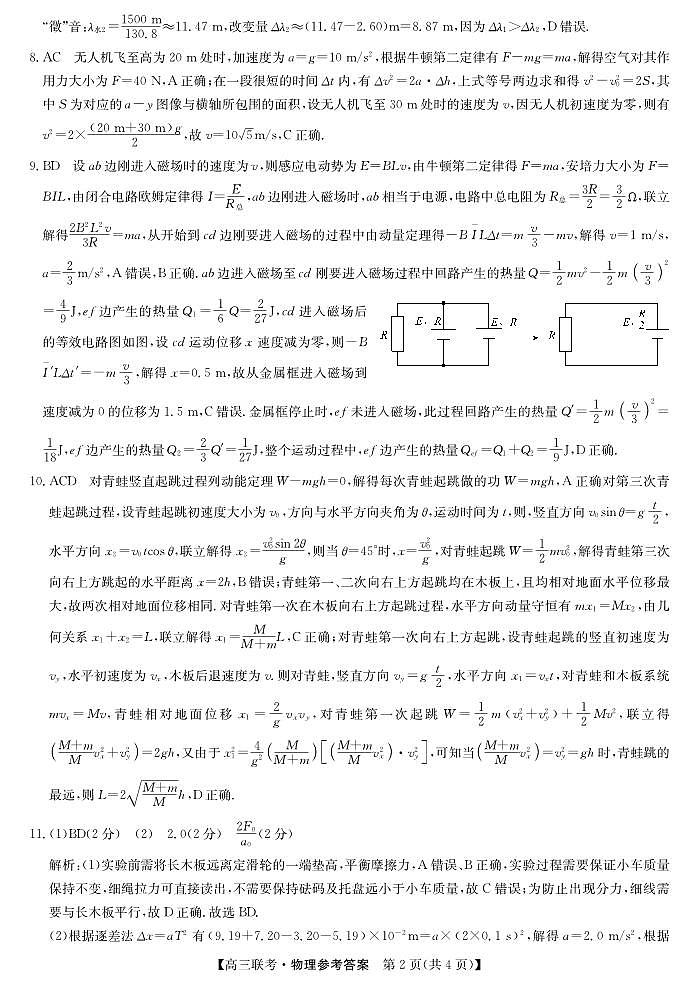 “徵”音:λ水2=1500 m/130.8≈11.47 m,改变量 Δλ2≈(11.47-2.60)m=8.87 m,因为 Δλ1>Δλ2,D错误.
8. AC 无人机飞至高为 20 m 处时,加速度为 a=g=10 m/s²,根据牛顿第二定律有 F-mg=ma,解得空气对其作
用力大小为 F=40 N,A 正确;在一段很短的时间 Δt 内,有 Δv²=2a·Δh,上式等号两边求和得 v²-v₀²=2S,其
中 S 为对应的 a-y 图像与横轴所包围的面积,设无人机飞至 30 m 处时的速度为 v,因无人机初速度为零,则有
v²=2×(20 m+30 m)g/2,故 v=10√5 m/s,C 正确.
9. BD 设 ab 边刚进入磁场时的速度为 v,则感应电动势为 E=BLv,由牛顿第二定律得 F=ma,安培力大小为 F=
BIL,由闭合电路欧姆定律得 I=E/R总,ab 边刚进入磁场时,ab 相当于电源,电路中总电阻为 R总=3R/2=3/2 Ω,联立
解得2B²L²v/3R=ma,从开始到 cd 边刚要进入磁场的过程中由动量定理得-B I̅LΔt=m v/3-mv,解得 v=1 m/s,
a=2/3 m/s²,A 错误,B 正确.ab 边进入磁场至 cd 刚要进入磁场过程中回路产生的热量 Q=1/2 mv²-1/2 m (v/3)²
=4/9 J,ef 边产生的热量 Q1=1/6 Q=2/27 J,cd 进入磁场后
的等效电路图如图,设 cd 运动位移 x 速度减为零,则-B
I̅′LΔt′=-m v/3,解得 x=0.5 m,故从金属框进入磁场到
R
E、R
E、R
R
E、R/2
速度减为 0 的位移为 1.5 m,C 错误.金属框停止时,ef 未进入磁场,此过程回路产生的热量 Q′=1/2 m (v/3)²=
1/18 J,ef 边产生的热量 Q2=2/3 Q′=1/27 J,整个运动过程中,ef 边产生的热量 Qef=Q1+Q2=1/9 J,D 正确.
10. ACD 对青蛙竖直起跳过程列动能定理 W-mgh=0,解得每次青蛙起跳做的功 W=mgh,A 正确对第三次青
蛙起跳过程,设青蛙起跳初速度大小为 v0,方向与水平方向夹角为 θ,运动时间为 t,则,竖直方向 v0 sin θ=g t/2,
水平方向 x3=v0 tcos θ,联立解得 x3=v0² sin 2θ/g,则当 θ=45°时,x=v0²/g,对青蛙起跳 W=1/2 mv0²,解得青蛙第三次
向右上方跳起的水平距离 x=2h,B 错误;青蛙第一、二次向右上方起跳均在木板上,且均相对地面水平位移最
大,故两次相对地面位移相同.对青蛙第一次在木板向右上方起跳过程,水平方向动量守恒有 mx1=Mx2,由几
何关系 x1+x2=L,联立解得 x1=M/(M+m) L,C 正确;对青蛙第一次向右上方起跳,设青蛙起跳的竖直初速度为
vy,水平初速度为 vx,木板后退速度为 v.则对青蛙,竖直方向 vy=g t/2,水平方向 x1=vxt,对青蛙和木板系统
mvx=Mv,青蛙相对地面位移 x1=2/g vxvy,对青蛙第一次起跳 W=1/2 m(vx²+vy²)+1/2 Mv²,联立得
((M+m)/M vx²+vy²)=2gh,又由于 x1²=4/g² (M/(M+m))[((M+m)/M vx²)·vy²],可知当((M+m)/M vx²)=vy²=gh 时,青蛙跳的
最远,则 L=2√((M+m)/M) h,D 正确.
11. (1)BD(2 分) (2) 2.0(2 分) 2F0/a0(2 分)
解析:(1)实验前需将长木板远离定滑轮的一端垫高,平衡摩擦力,A 错误、B 正确,实验过程需要保证小车质量
保持不变,细绳拉力可直接读出,不需要保持砝码及托盘远小于小车质量,故 C 错误;为防止出现分力,细线需
要与长木板平行,故 D 正确.故选 BD.
(2)根据逐差法 Δx=aT² 有(9.19+7.20-3.20-5.19)×10⁻² m=a×(2×0.1 s)²,解得 a=2.0 m/s²,根据
【高三联考·物理参考答案 第 2 页(共 4 页)】